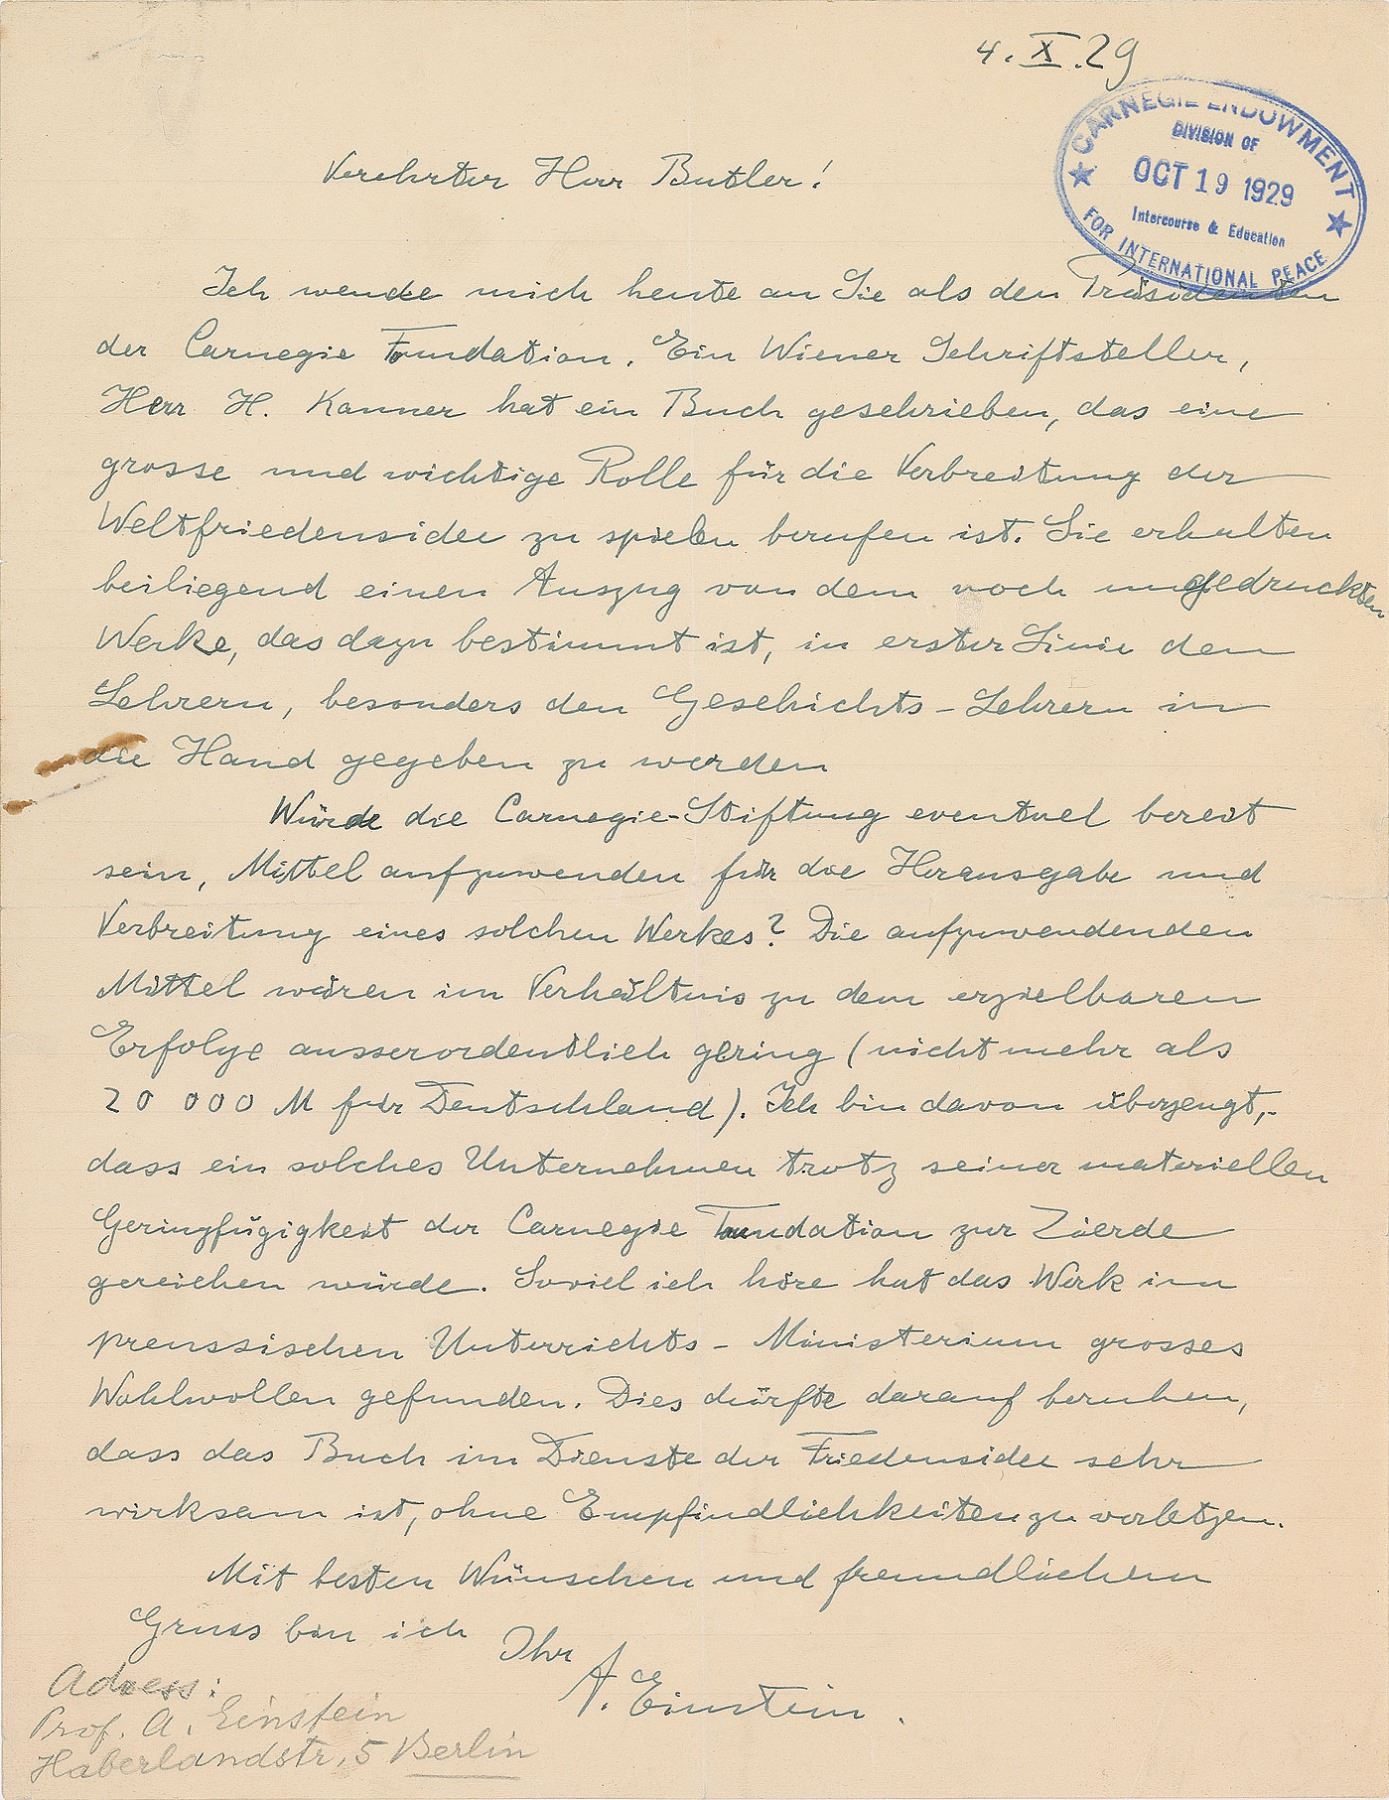 4. X. 29
CARNEGIE ENDOWMENT
DIVISION OF
OCT 19 1929
Intercourse & Education
FOR INTERNATIONAL PEACE
Verehrter Herr Butler!
Ich wende mich heute an Sie als den Präsidenten
der Carnegie Foundation. Ein Wiener Schriftsteller,
Herr H. Kanner hat ein Buch geschrieben, das eine
grosse und wichtige Rolle für die Verbreitung der
Weltfriedensidee zu spielen berufen ist. Sie erhalten
beiliegend einen Auszug von dem noch ungedruckten
Werke, das dazu bestimmt ist, in erster Linie den
Lehrern, besonders den Geschichts-Lehrern in
die Hand gegeben zu werden
Würde die Carnegie-Stiftung eventuel bereit
sein, Mittel aufzuwenden für die Herausgabe und
Verbreitung eines solchen Werkes? Die aufzuwendenden
Mittel wären im Verhältnis zu dem erzielbaren
Erfolge ausserordentlich gering (nicht mehr als
20 000 M für Deutschland). Ich bin davon überzeugt,
dass ein solches Unternehmen trotz seiner materiellen
Geringfügigkeit der Carnegie Foundation zur Zierde
gereichen würde. Soviel ich höre hat das Werk im
preussischen Unterrichts-Ministerium grosses
Wohlwollen gefunden. Dies dürfte darauf beruhen,
dass das Buch im Dienste der Friedensidee sehr
wirksam ist, ohne Empfindlichkeiten zu verletzen.
Mit besten Wünschen und freundlichem
Gruss bin ich
Ihr
A. Einstein.
Adress:
Prof. A. Einstein
Haberlandstr. 5 Berlin